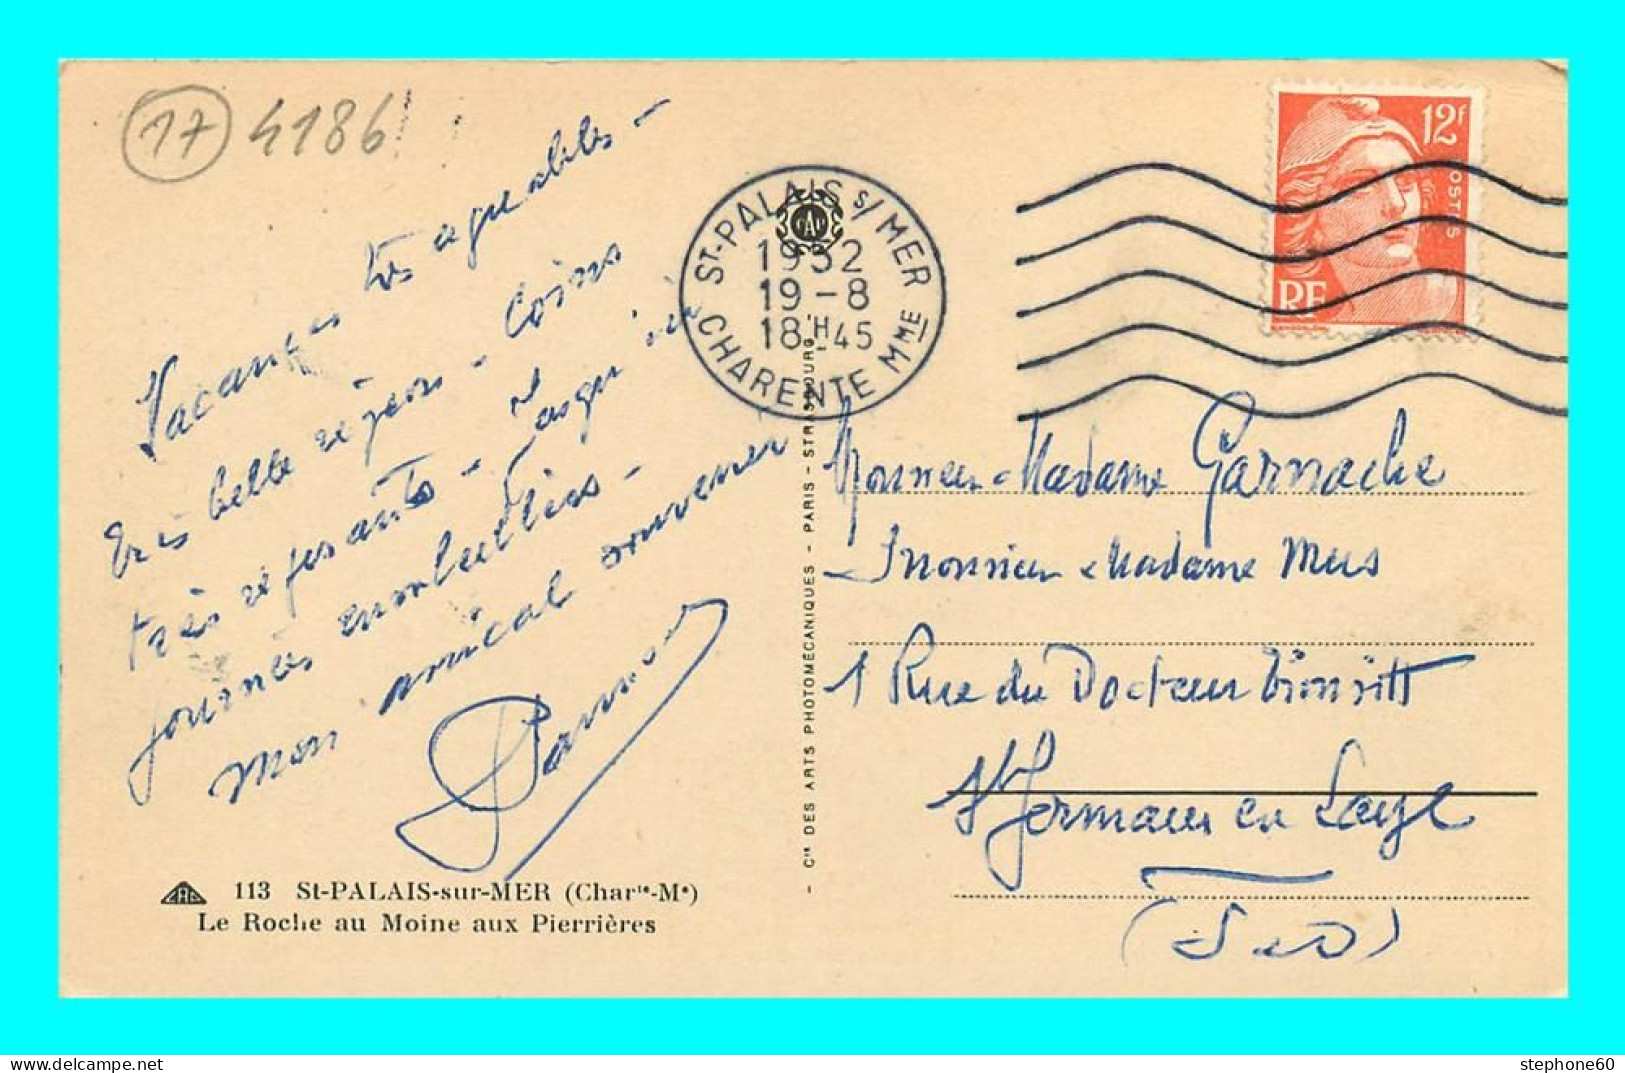 17 4186
Vacances très agréables -
très belle région - Coins
très reposants - Jusqu'ici
journées ensoleillées -
mon amical souvenir
113 St-PALAIS-sur-MER (Charte-Me)
Le Roche au Moine aux Pierrières
ST-PALAIS S/ MER
1952
19-8
18H45
CHARENTE MME
12F
POSTES
RF
- Cie DES ARTS PHOTOMÉCANIQUES - PARIS - STRASBOURG
Monsieur - Madame Garnache
Monsieur & Madame Mus
1 Rue du Docteur
St Germain en Laye
(S & O)
stephone60